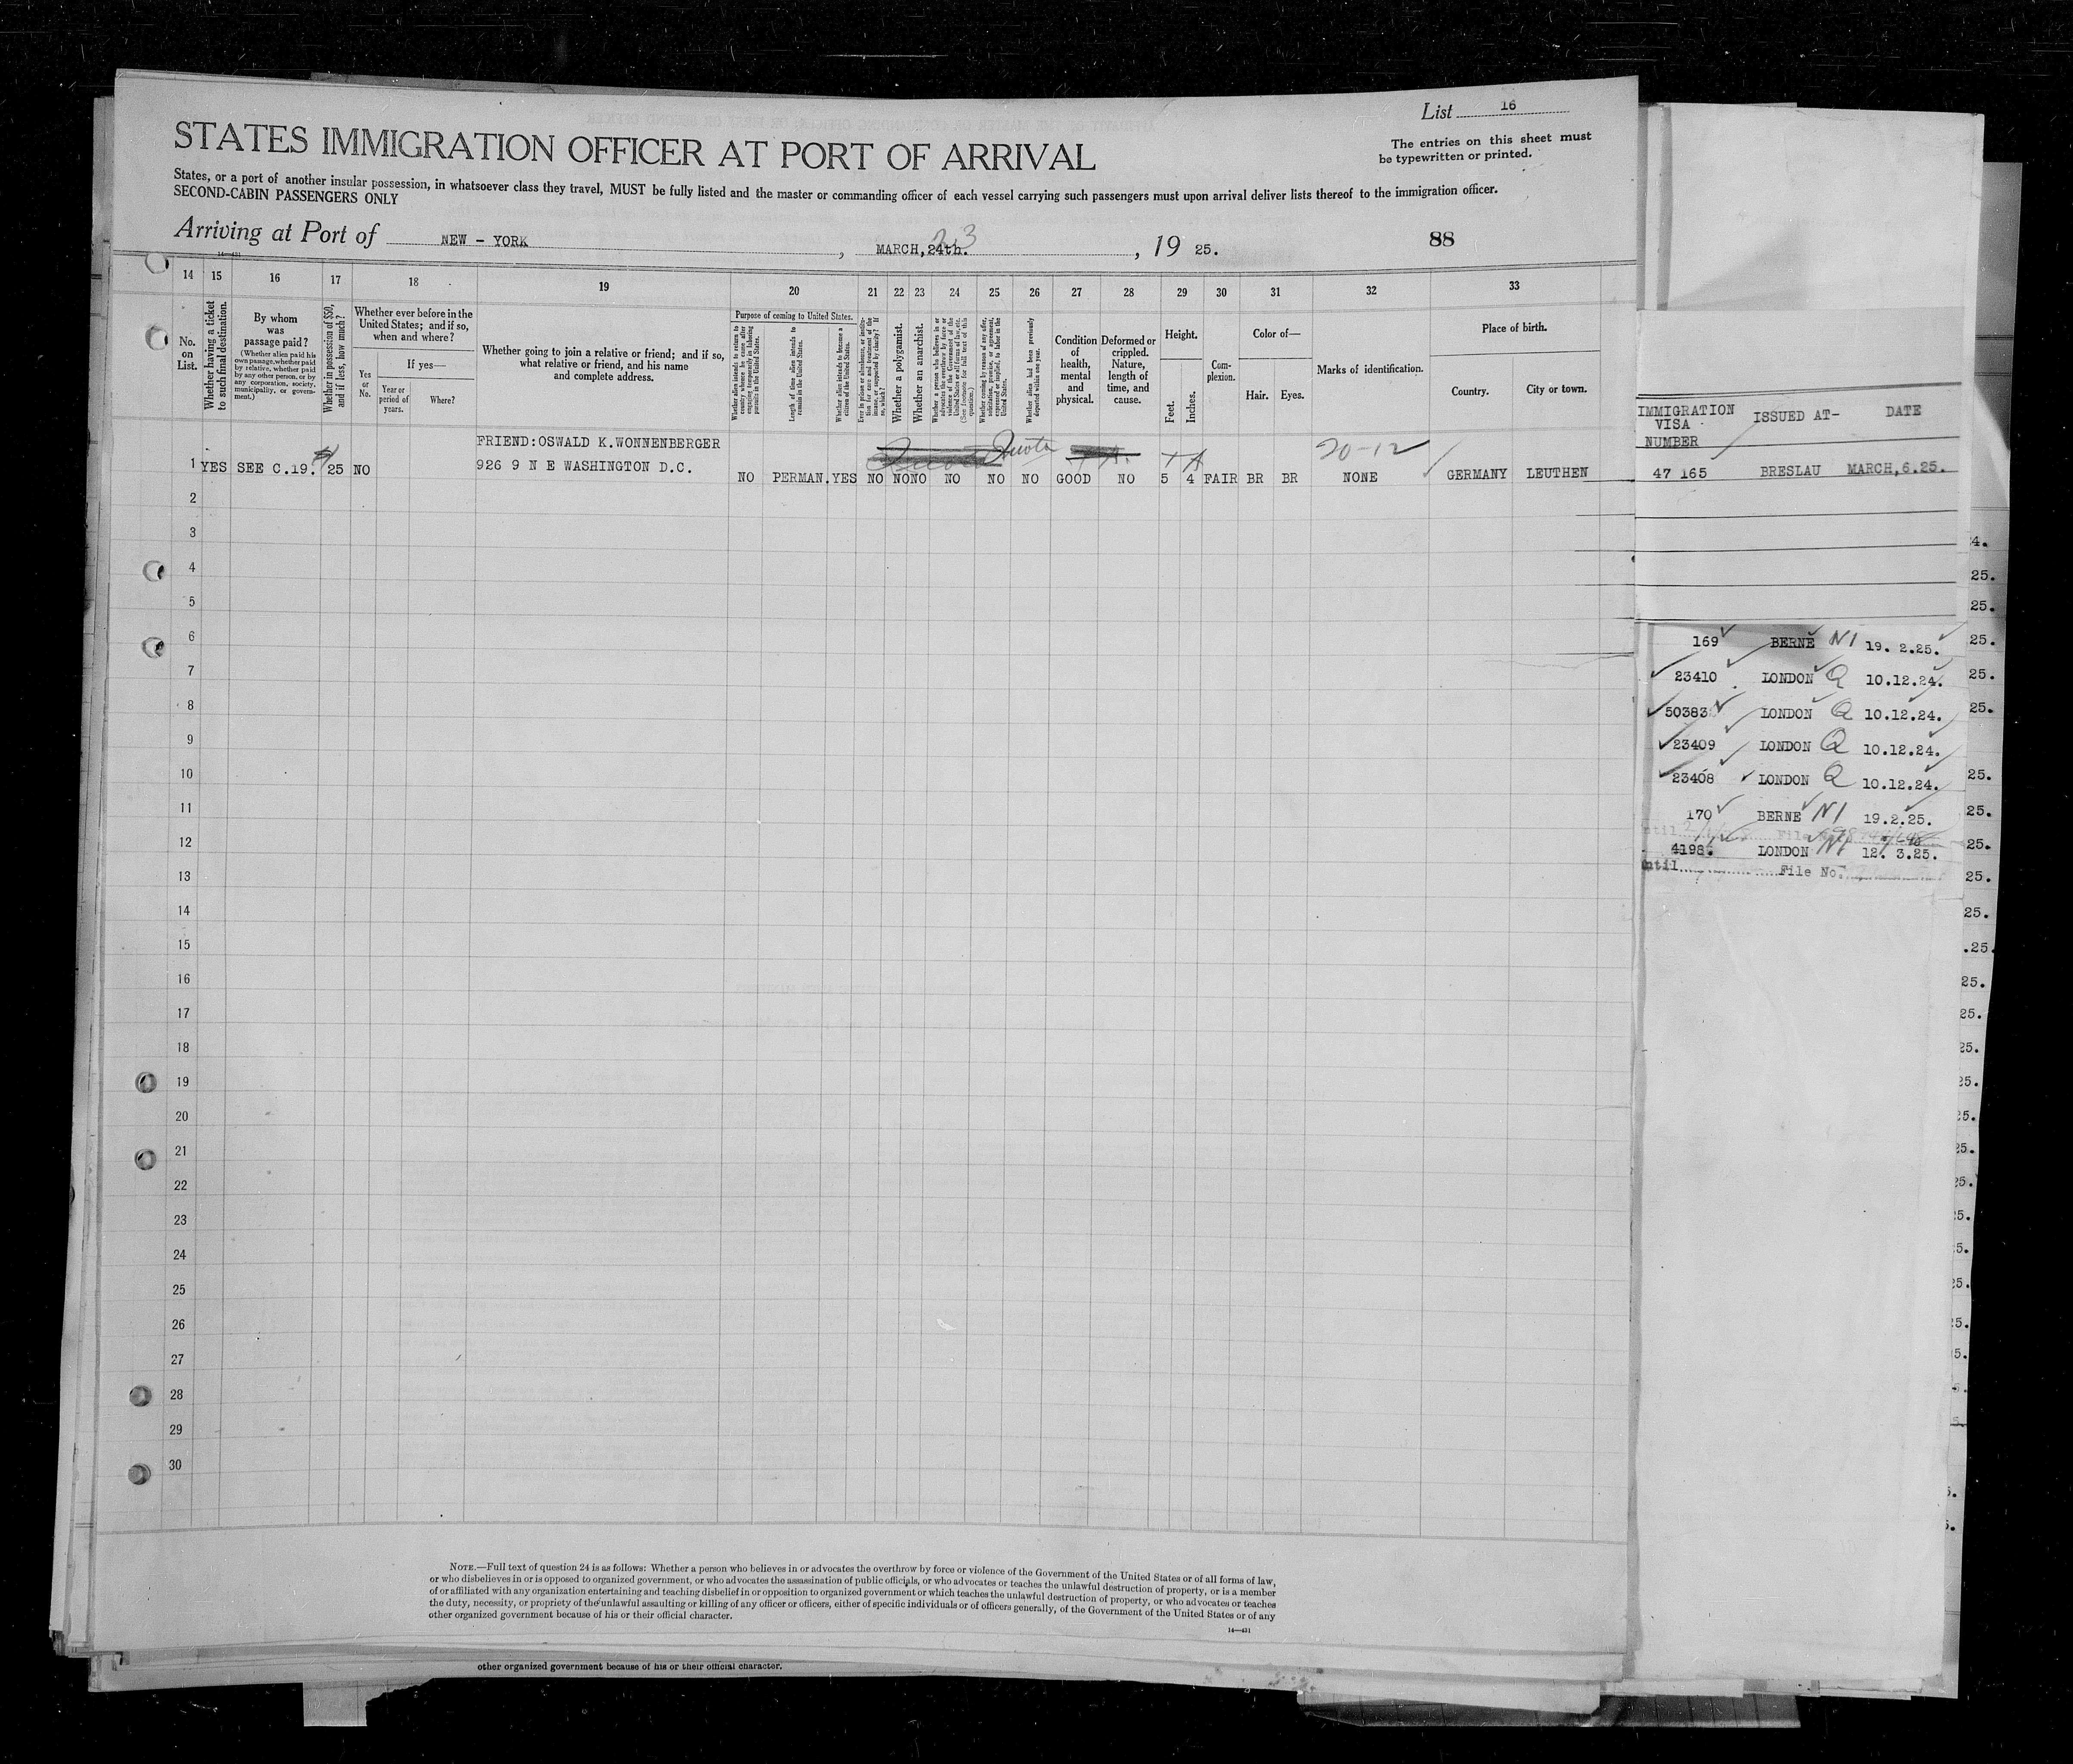 List 16
The entries on this sheet must
be typewritten or printed.
STATES IMMIGRATION OFFICER AT PORT OF ARRIVAL
States, or a port of another insular possession, in whatsoever class they travel, MUST be fully listed and the master or commanding officer of each vessel carrying such passengers must upon arrival deliver lists thereof to the immigration officer.
SECOND-CABIN PASSENGERS ONLY
Arriving at Port of NEW - YORK, MARCH, 24th. 23, 19 25.
88
14—431
14 15 16 17 18 19 20 21 22 23 24 25 26 27 28 29 30 31 32 33
No. on List.
Whether having a ticket to such final destination.
By whom was passage paid?
(Whether alien paid his own passage, whether paid by relative, whether paid by any other person, or by any corporation, society, municipality, or government.)
Whether in possession of $50, and if less, how much?
Whether ever before in the United States; and if so, when and where?
Yes or No.
If yes—
Year or period of years.
Where?
Whether going to join a relative or friend; and if so, what relative or friend, and his name and complete address.
Purpose of coming to United States.
Whether alien intends to return to country whence he came after engaging temporarily in laboring pursuits in the United States.
Length of time alien intends to remain in the United States.
Whether alien intends to become a citizen of the United States.
Ever in prison or almshouse, or institution for care and treatment of the insane, or supported by charity? If so, which?
Whether a polygamist.
Whether an anarchist.
Whether a person who believes in or advocates the overthrow by force or violence of the Government of the United States or all forms of law, etc. (See footnote for full text of this question.)
Whether coming by reason of any offer, solicitation, promise, or agreement, expressed or implied, to labor in the United States.
Whether alien had been previously deported within one year.
Condition of health, mental and physical.
Deformed or crippled. Nature, length of time, and cause.
Height.
Feet.
Inches.
Complexion.
Color of—
Hair.
Eyes.
Marks of identification.
Place of birth.
Country.
City or town.
IMMIGRATION VISA NUMBER
ISSUED AT-
DATE
FRIEND:OSWALD K.WONNENBERGER
Quota
20-12
1 YES SEE C.19. 25 NO 926 9 N E WASHINGTON D.C. NO PERMAN. YES NO NO NO NO NO NO GOOD NO 5 4 FAIR BR BR NONE GERMANY LEUTHEN 47 165 BRESLAU MARCH,6.25.
2
3
4
5
6
7
8
9
10
11
12
13
14
15
16
17
18
19
20
21
22
23
24
25
26
27
28
29
30
169 BERNE NI 19. 2.25.
23410 LONDON Q 10.12.24.
50383 LONDON Q 10.12.24.
23409 LONDON Q 10.12.24.
23408 LONDON Q 10.12.24.
170 BERNE NI 19.2.25.
4198. LONDON NI 12. 3.25.
until File No.
4.
25.
25.
25.
25.
25.
25.
25.
25.
25.
25.
.25.
25.
25.
25.
25.
25.
25.
25.
NOTE.—Full text of question 24 is as follows: Whether a person who believes in or advocates the overthrow by force or violence of the Government of the United States or of all forms of law,
or who disbelieves in or is opposed to organized government, or who advocates the assassination of public officials, or who advocates or teaches the unlawful destruction of property, or is a member
of or affiliated with any organization entertaining and teaching disbelief in or opposition to organized government or which teaches the unlawful destruction of property, or who advocates or teaches
the duty, necessity, or propriety of the unlawful assaulting or killing of any officer or officers, either of specific individuals or of officers generally, of the Government of the United States or of any
other organized government because of his or their official character.
14—431
other organized government because of his or their official character.